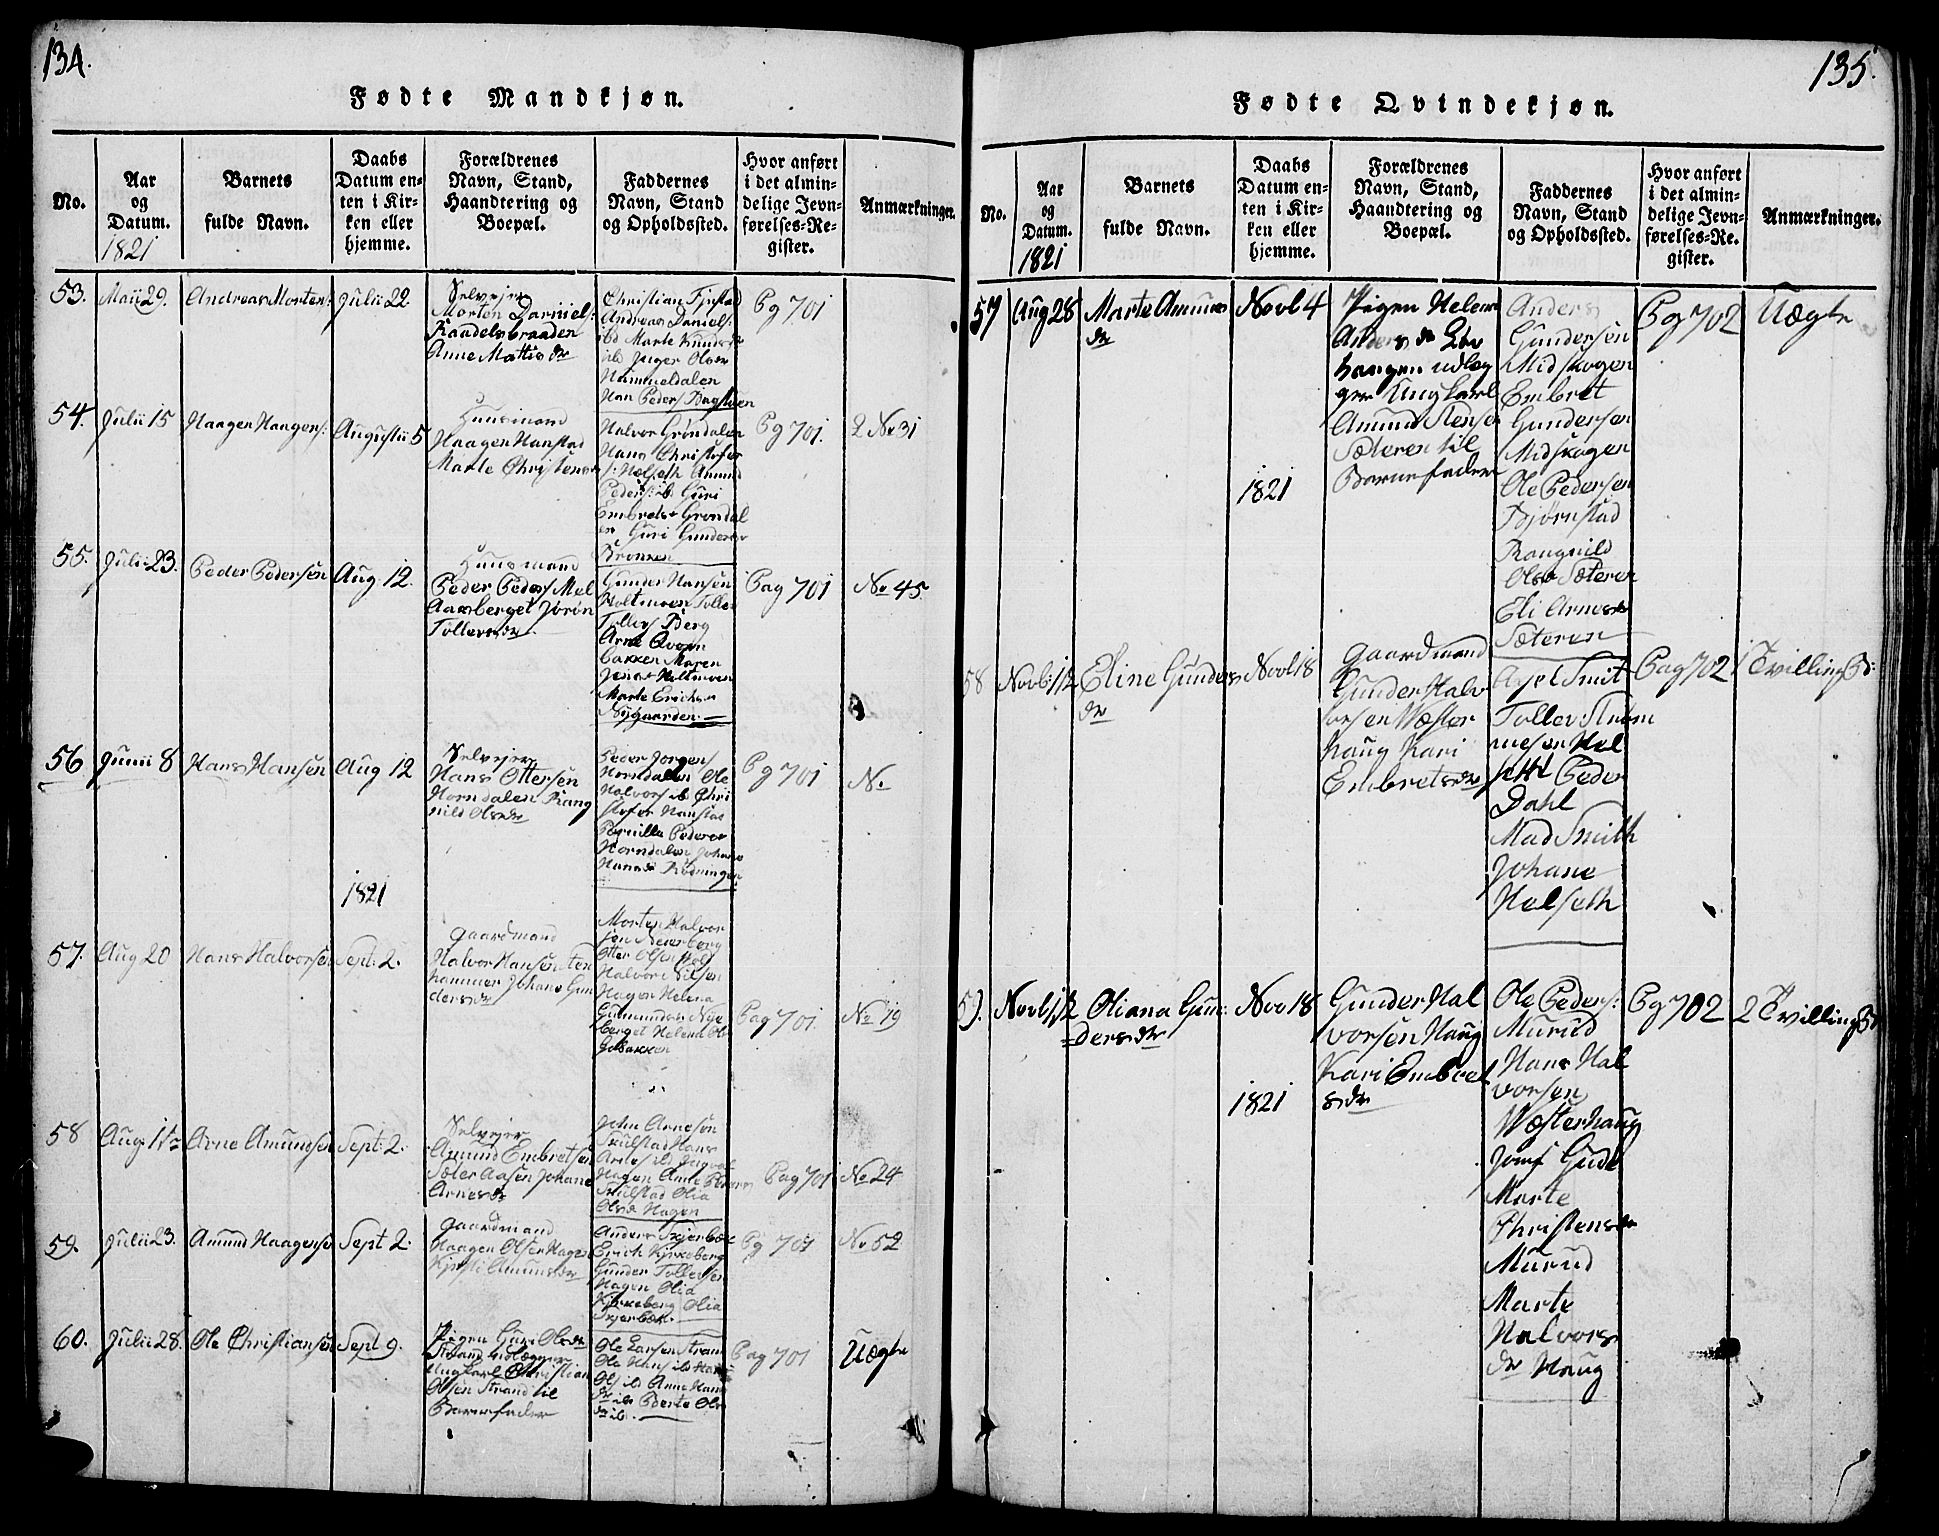 134.
Fødte Mandkjøn.
No.
Aar
og
Datum.
1821
Barnets
fulde Navn.
Daabs
Datum en-
ten i Kir-
ken eller
hjemme.
Forældrenes
Navn, Stand,
Haandtering og
Boepæl.
Faddernes
Navn, Stand
og Opholdssted.
Hvor anført
i det almin-
delige Jevn-
førelses-Re-
gister.
Anmærkninger.
53.
Maii 29.
Andreas Mortens:
Julii 22
Selvejer
Morten Darniels:
Anne Mattis dr
Christian
Andreas Daniels:
ibd Marte Knuds
ibd Inger Ols
Himmeldalen
Han Peders
Pg 701
54.
Julii 15
Haagen Haagens:
Augustii 5
Huusmand
Haagen Hanstad
Marte Christens
Halvor Grøndalen
Hans Christofer
Halseth Amund
Peders: ib Guri
Embrets Grøndal
en Guri Gunders
Pg 701.
2 No 31
55.
Julii 23.
Peder Pedersen
Aug. 12.
Huusmand
Peder Peders Mel
Aasberget Jørøn
Tollersdr
Gunder Hansen
Holtmoen Toller
Tollers Berg
Arne Qvern
bakken Maren
Jens Holtmoen
Marte Erichs
Nygaarden
Pag 701
No 45
56
Junii 8
Hans Hansen
Aug 12
Selvejer
Hans Ottersen
Horndalen Rang
nild Olsdr
Peder Jørgens
Horndalen Ole
Halvors ib Chri
stofer Hanstad
Pernilla Peders
Horndalen Johane
Hansd Rødningen
Pg 701
No
1821
57.
Aug 20
Hans Halvorsen
Sept: 2.
Gaardmand
Halvor Hansen Sten
hammer Johane Gun
dersdr
Morten Halvor
sen
Otter Olsen
Halvor Nilsen
Hagen Helena
Gulmundsdr Nye
berget Helena
Pag 701
No 79
58
Aug
Arne Amundsen
Sept: 2.
Selvejer
Amund Embretsen
Sæter Aasen Johane
Arnesdr
John Arnesen
Skulstad Hans
Arnes ibd
Hagen Anne Peders
Skulstad Olia
Olsd Hagen
Pag 701
No 24
59.
Julii 23.
Amund Haagensen
Sept 2.
Gaardmand
Haagen Olsen Hagen
Kjersti Amundsdr
Anders Skjerbæk
Erich Kirkeberg
Gunder Tollersen
Hagen Olia
Kirkeberg Olia
Skjerbæk
Pg 701
No 52
60.
Julii 28.
Ole Christiansen
Sept 9.
Pigen Guri Olsdr
Strand udlægger
Ungkarl Christian
Olsen Strand til
Barnefader
Ole Larsen Strand
Ole Hans ibd Hans
Ols ibd Anne Hans
dr ib Berte Ols
dr ib.
Pag 701
Uægte
135.
Fødte Qvindekjøn.
No.
Aar
og
Datum.
1821
Barnets
fulde Navn.
Daabs
Datum en-
ten i Kir-
ken eller
hjemme.
Forældrenes
Navn, Stand,
Haandtering og
Boepæl.
Faddernes
Navn, Stand
og Opholdssted.
Hvor anført
i det almin-
delige Jevn-
førelses-Re-
gister.
Anmærkninger.
57
Aug 28
Marte Amunds
dr
Novb 4
Pigen Helene
Anders dr
haugen udlæg
ger Ungkarl
Amund Stensen
Sæteren til
Barnefader
Anders
Gundersen
Midskogen
Embret
Gundersen
Midskogen
Ole Pedersen
Bjørnstad
Rangnild
Olsdr Sæteren
Eli Arnesdr
Sæteren
Pg 702
Uægte
1821
58
Novb: 12
Eline Gunders
dr
Novb 18
Gaardmand
Gunder Halv
orsen Wæster
haug Kari
Embretsdr
Axel Smit
Toller Strøm
mesen Hal
seth Peder
Dahl
Mad Smith
Johane
Halseth
Pag 702
1 Tvilling B:
59.
Novb 12
Oliana Gun
dersdr
Nov 18
Gunder Hal
vorsen Haug
Kari Embret
sdr
Ole Peders:
Murud
Hans Hal
vorsen
Wæsterhaug
Jons Gude
Marte
Christensdr
Murud
Marte
Halvors
dr Haug
Pg 702
2 Tvilling B:
1821